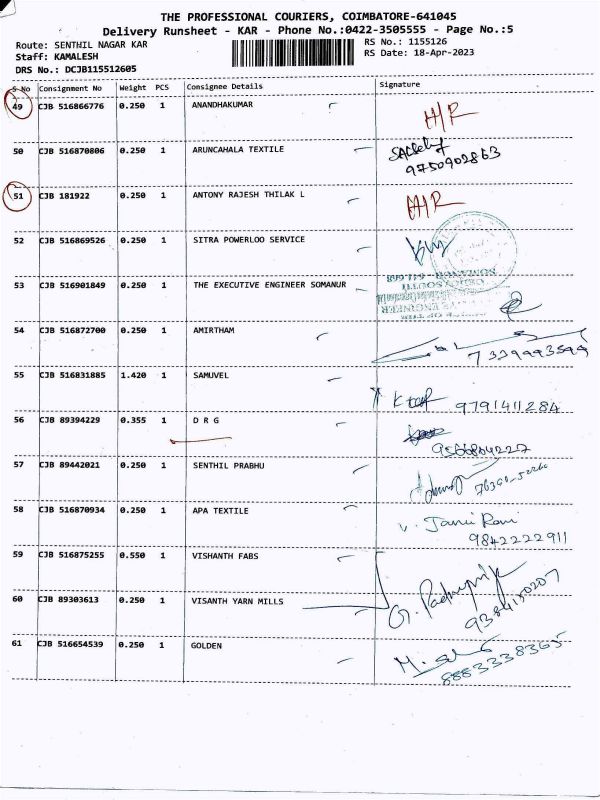 THE PROFESSIONAL COURIERS, COIMBATORE-641045
Delivery Runsheet - KAR - Phone No.:0422-3505555 - Page No.:5
Route: SENTHIL NAGAR KAR
RS No.: 1155126
Staff: KAMALESH
RS Date: 18-Apr-2023
DRS No.: DCJB115512605
S No Consignment No Weight PCS Consignee Details Signature
49 CJB 516866776 0.250 1 ANANDHAKUMAR
50 CJB 516870806 0.250 1 ARUNCAHALA TEXTILE
9750902863
51 CJB 181922 0.250 1 ANTONY RAJESH THILAK L
52 CJB 516869526 0.250 1 SITRA POWERLOO SERVICE
53 CJB 516901849 0.250 1 THE EXECUTIVE ENGINEER SOMANUR
54 CJB 516872700 0.250 1 AMIRTHAM
55 CJB 516831885 1.420 1 SAMUVEL
9791411284
56 CJB 89394229 0.355 1 D R G
57 CJB 89442021 0.250 1 SENTHIL PRABHU
58 CJB 516870934 0.250 1 APA TEXTILE
9842222911
59 CJB 516875255 0.550 1 VISHANTH FABS
60 CJB 89303613 0.250 1 VISANTH YARN MILLS
61 CJB 516654539 0.250 1 GOLDEN
8883338365